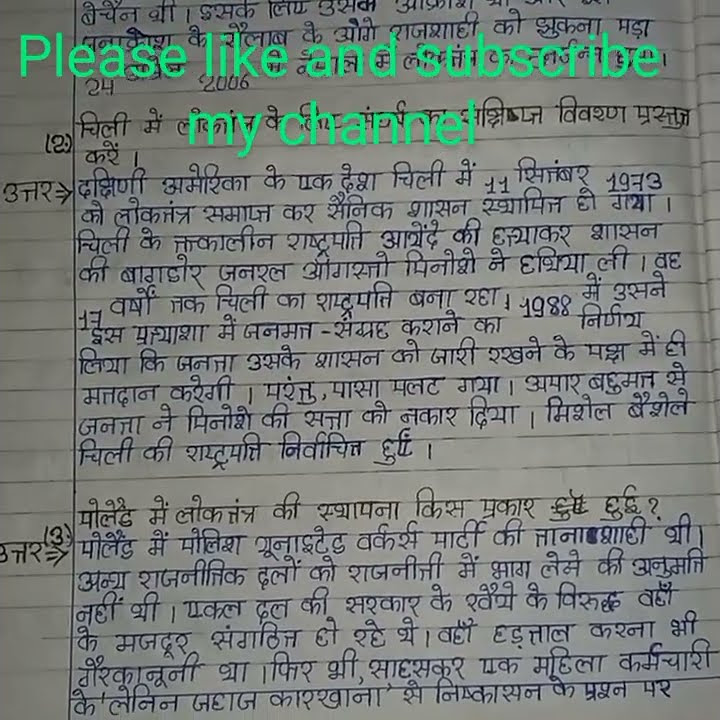 बेचैन थी। इसके लिए उसमें
के सैलाब के आगे राजशाही को झुकना पड़ा
Please like and subscribe
24 2006 नेपाल में
my channel
(2) चिली में लोकतंत्र के लिए संघर्ष का संक्षिप्त विवरण प्रस्तुत
करें।
उत्तर⇒ दक्षिणी अमेरिका के एक देश चिली में 11 सितंबर 1973
को लोकतंत्र समाप्त कर सैनिक शासन स्थापित हो गया।
चिली के तत्कालीन राष्ट्रपति आयेंदे की हत्याकर शासन
की बागडोर जनरल ऑगस्तो पिनोशे ने हथिया ली। वह
17 वर्षों तक चिली का राष्ट्रपति बना रहा। 1988 में उसने
इस प्रत्याशा में जनमत-संग्रह कराने का निर्णय
लिया कि जनता उसके शासन को जारी रखने के पक्ष में ही
मतदान करेगी। परंतु, पासा पलट गया। अपार बहुमत से
जनता ने पिनोशे की सत्ता को नकार दिया। मिशेल बैशेले
चिली की राष्ट्रपति निर्वाचित हुई।
(3) पोलैंड में लोकतंत्र की स्थापना किस प्रकार हुई?
उत्तर⇒ पोलैंड में पोलिश यूनाइटेड वर्कर्स पार्टी की तानाशाही थी।
अन्य राजनीतिक दलों को राजनीती में भाग लेने की अनुमति
नहीं थी। एकल दल की सरकार के रवैये के विरुद्ध वहाँ
के मजदूर संगठित हो रहे थे। वहाँ हड़ताल करना भी
गैरकानूनी था। फिर भी, साहसकर एक महिला कर्मचारी
के 'लेनिन जहाज कारखाना' से निष्कासन के प्रश्न पर